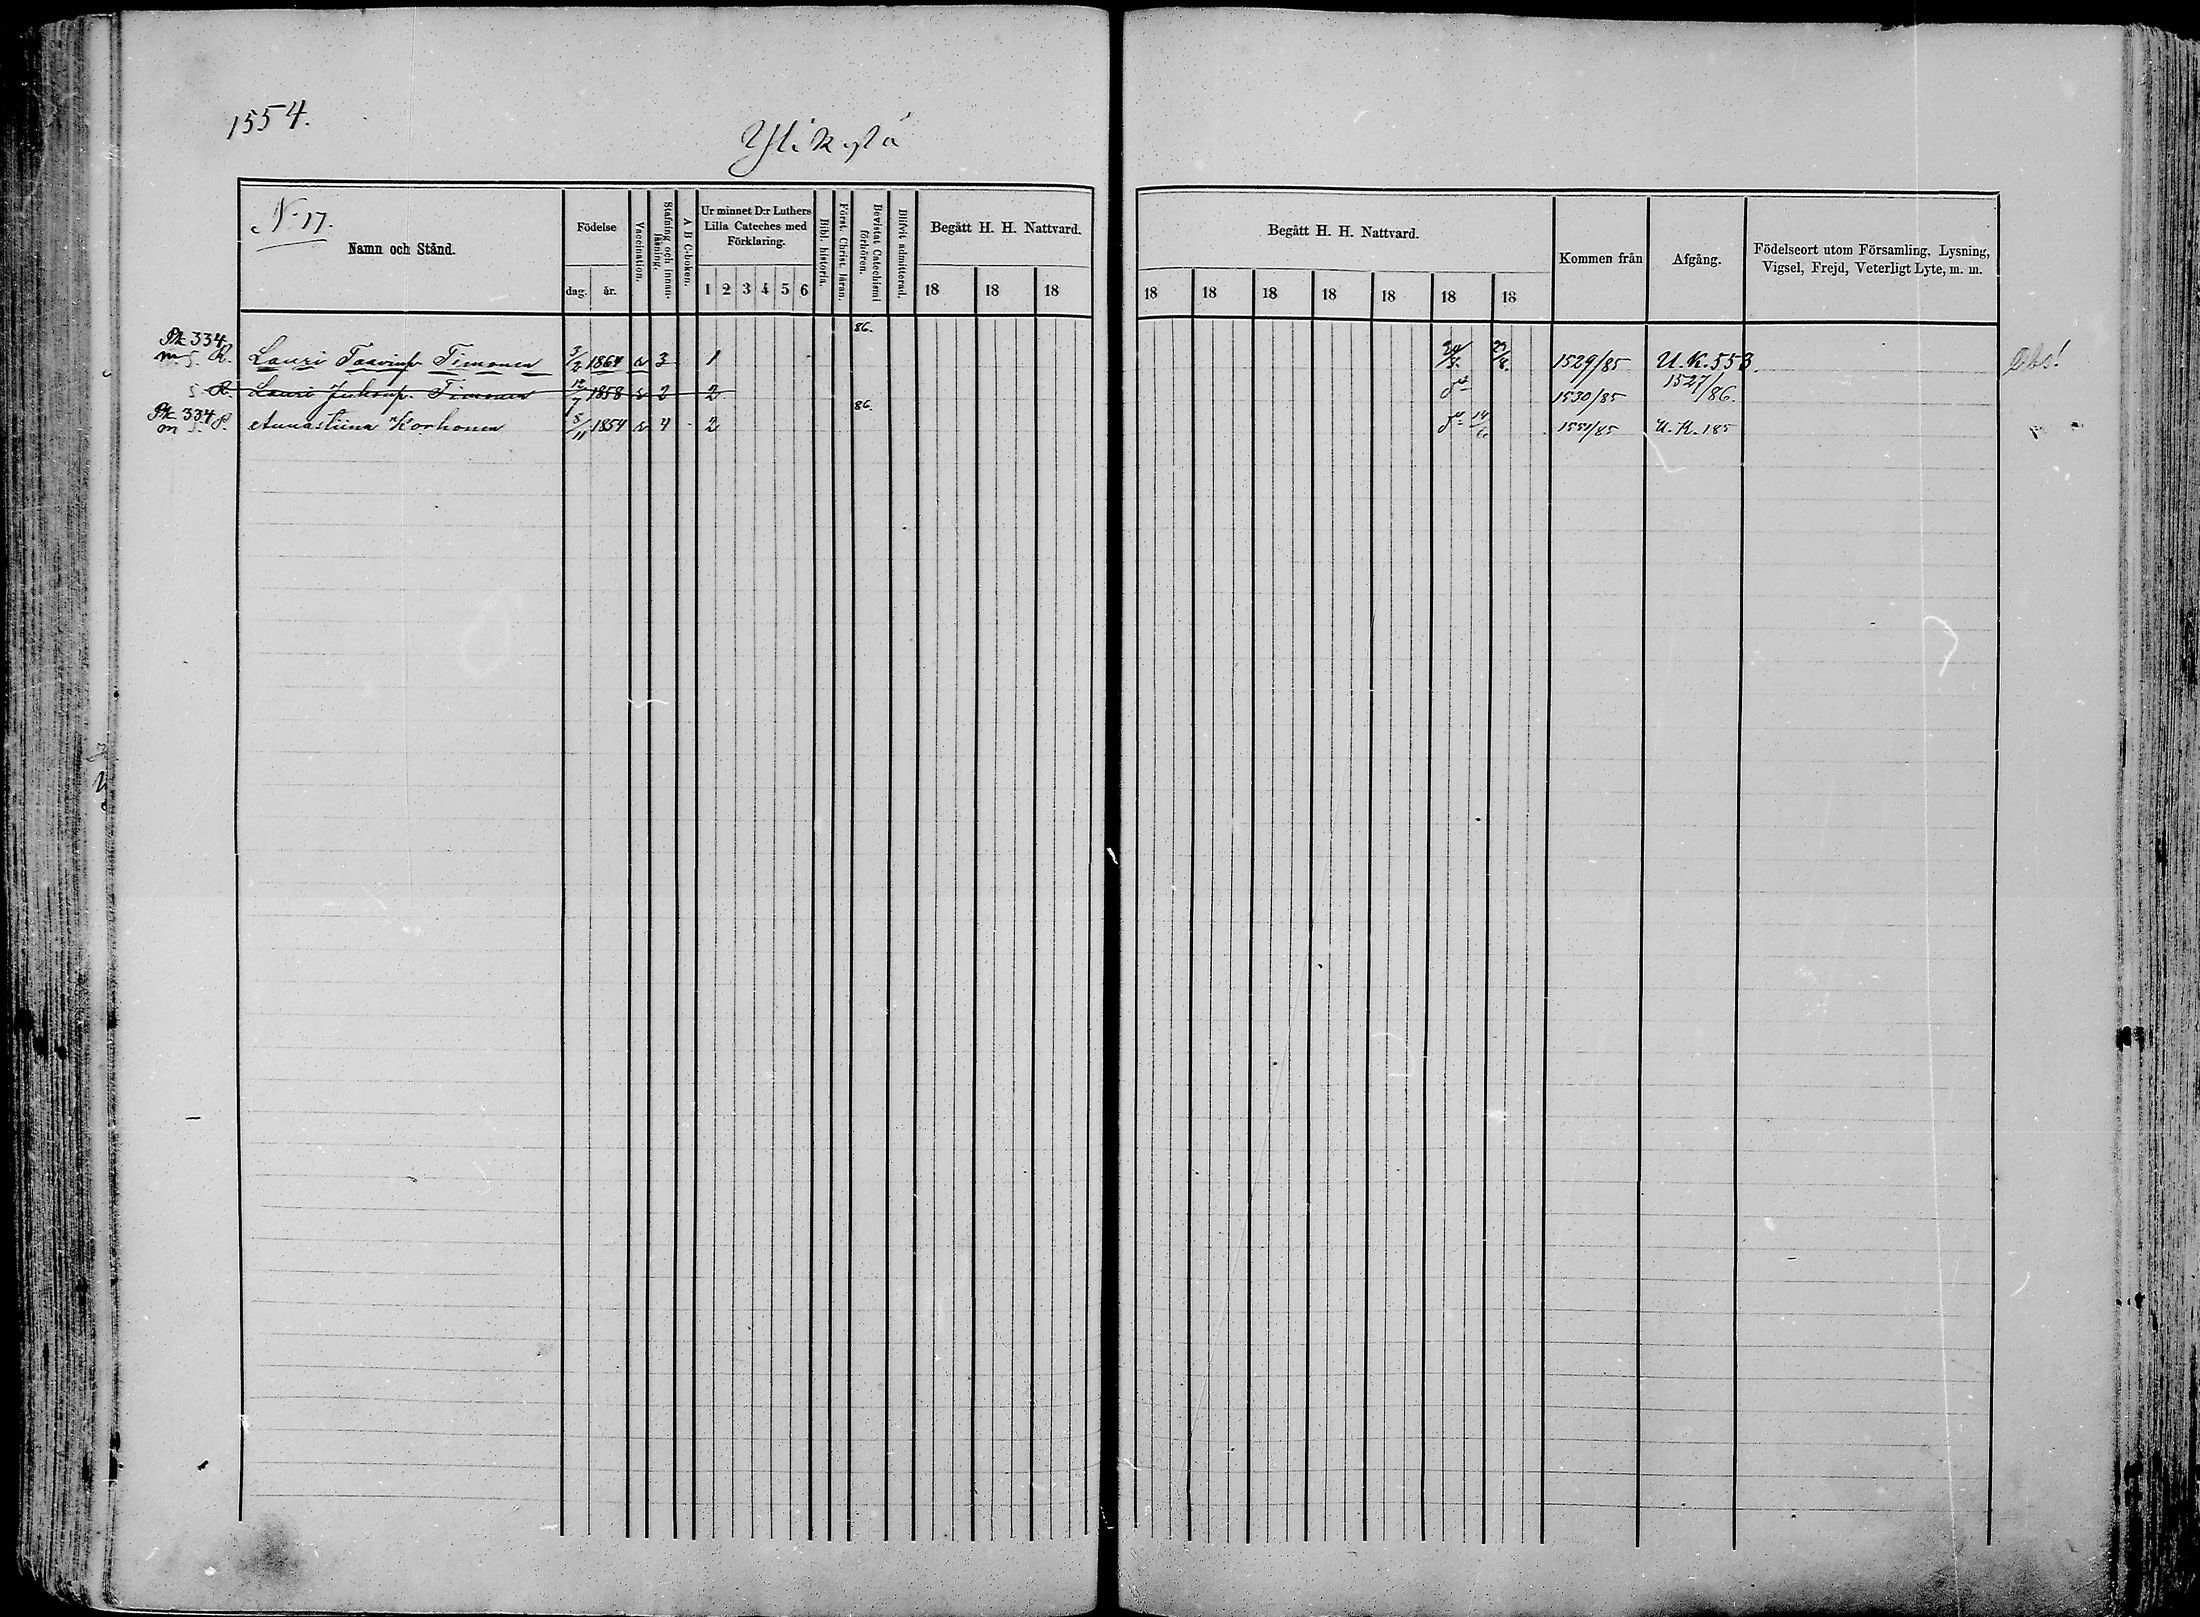 1554.
Ylikylä
N 17.
Namn och Stånd.
Födelse
dag. år.
Vaccination.
Stafning och innanläsning.
A B C-boken.
Ur minnet D:r Luthers Lilla Cateches med Förklaring.
1 2 3 4 5 6
Bibl. historia.
Först. Christ. läran.
Bevistat Catechismi förhören.
Blifvit admitterad.
Begått H. H. Nattvard.
18 18 18
Begått H. H. Nattvard.
18 18 18 18 18 18 18
Kommen från
Afgång.
Födelseort utom Församling, Lysning, Vigsel, Frejd, Veterligt Lyte, m. m.
Pk 334 86.
m s. R. Lauri Taavinp. Timonen 3/2 1864 v 3 1 1529/85 U.K. 553. Obs!
s R. Lauri Juhonp. Timonen 12/7 1858 v 2 2 1530/85 1527/86.
Pk 334 86.
m s. P. Annastiina Korhonen 5/11 1854 v 4 2 14/6 1551/85 U.K. 185